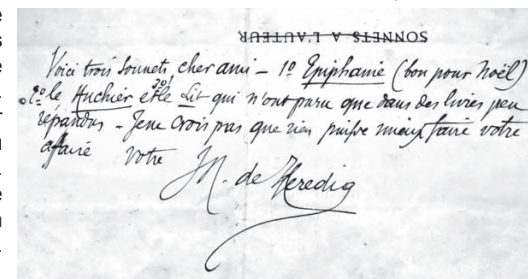 SONNETS A L'AUTEUR
Voici trois sonnets, cher ami – 1º Epiphanie (bon pour Noël)
2º le Huchier et 3º le Lit qui n'ont paru que dans des livres peu
répandus – Je ne crois pas que rien puisse mieux faire votre
affaire Votre
JM. de Heredia